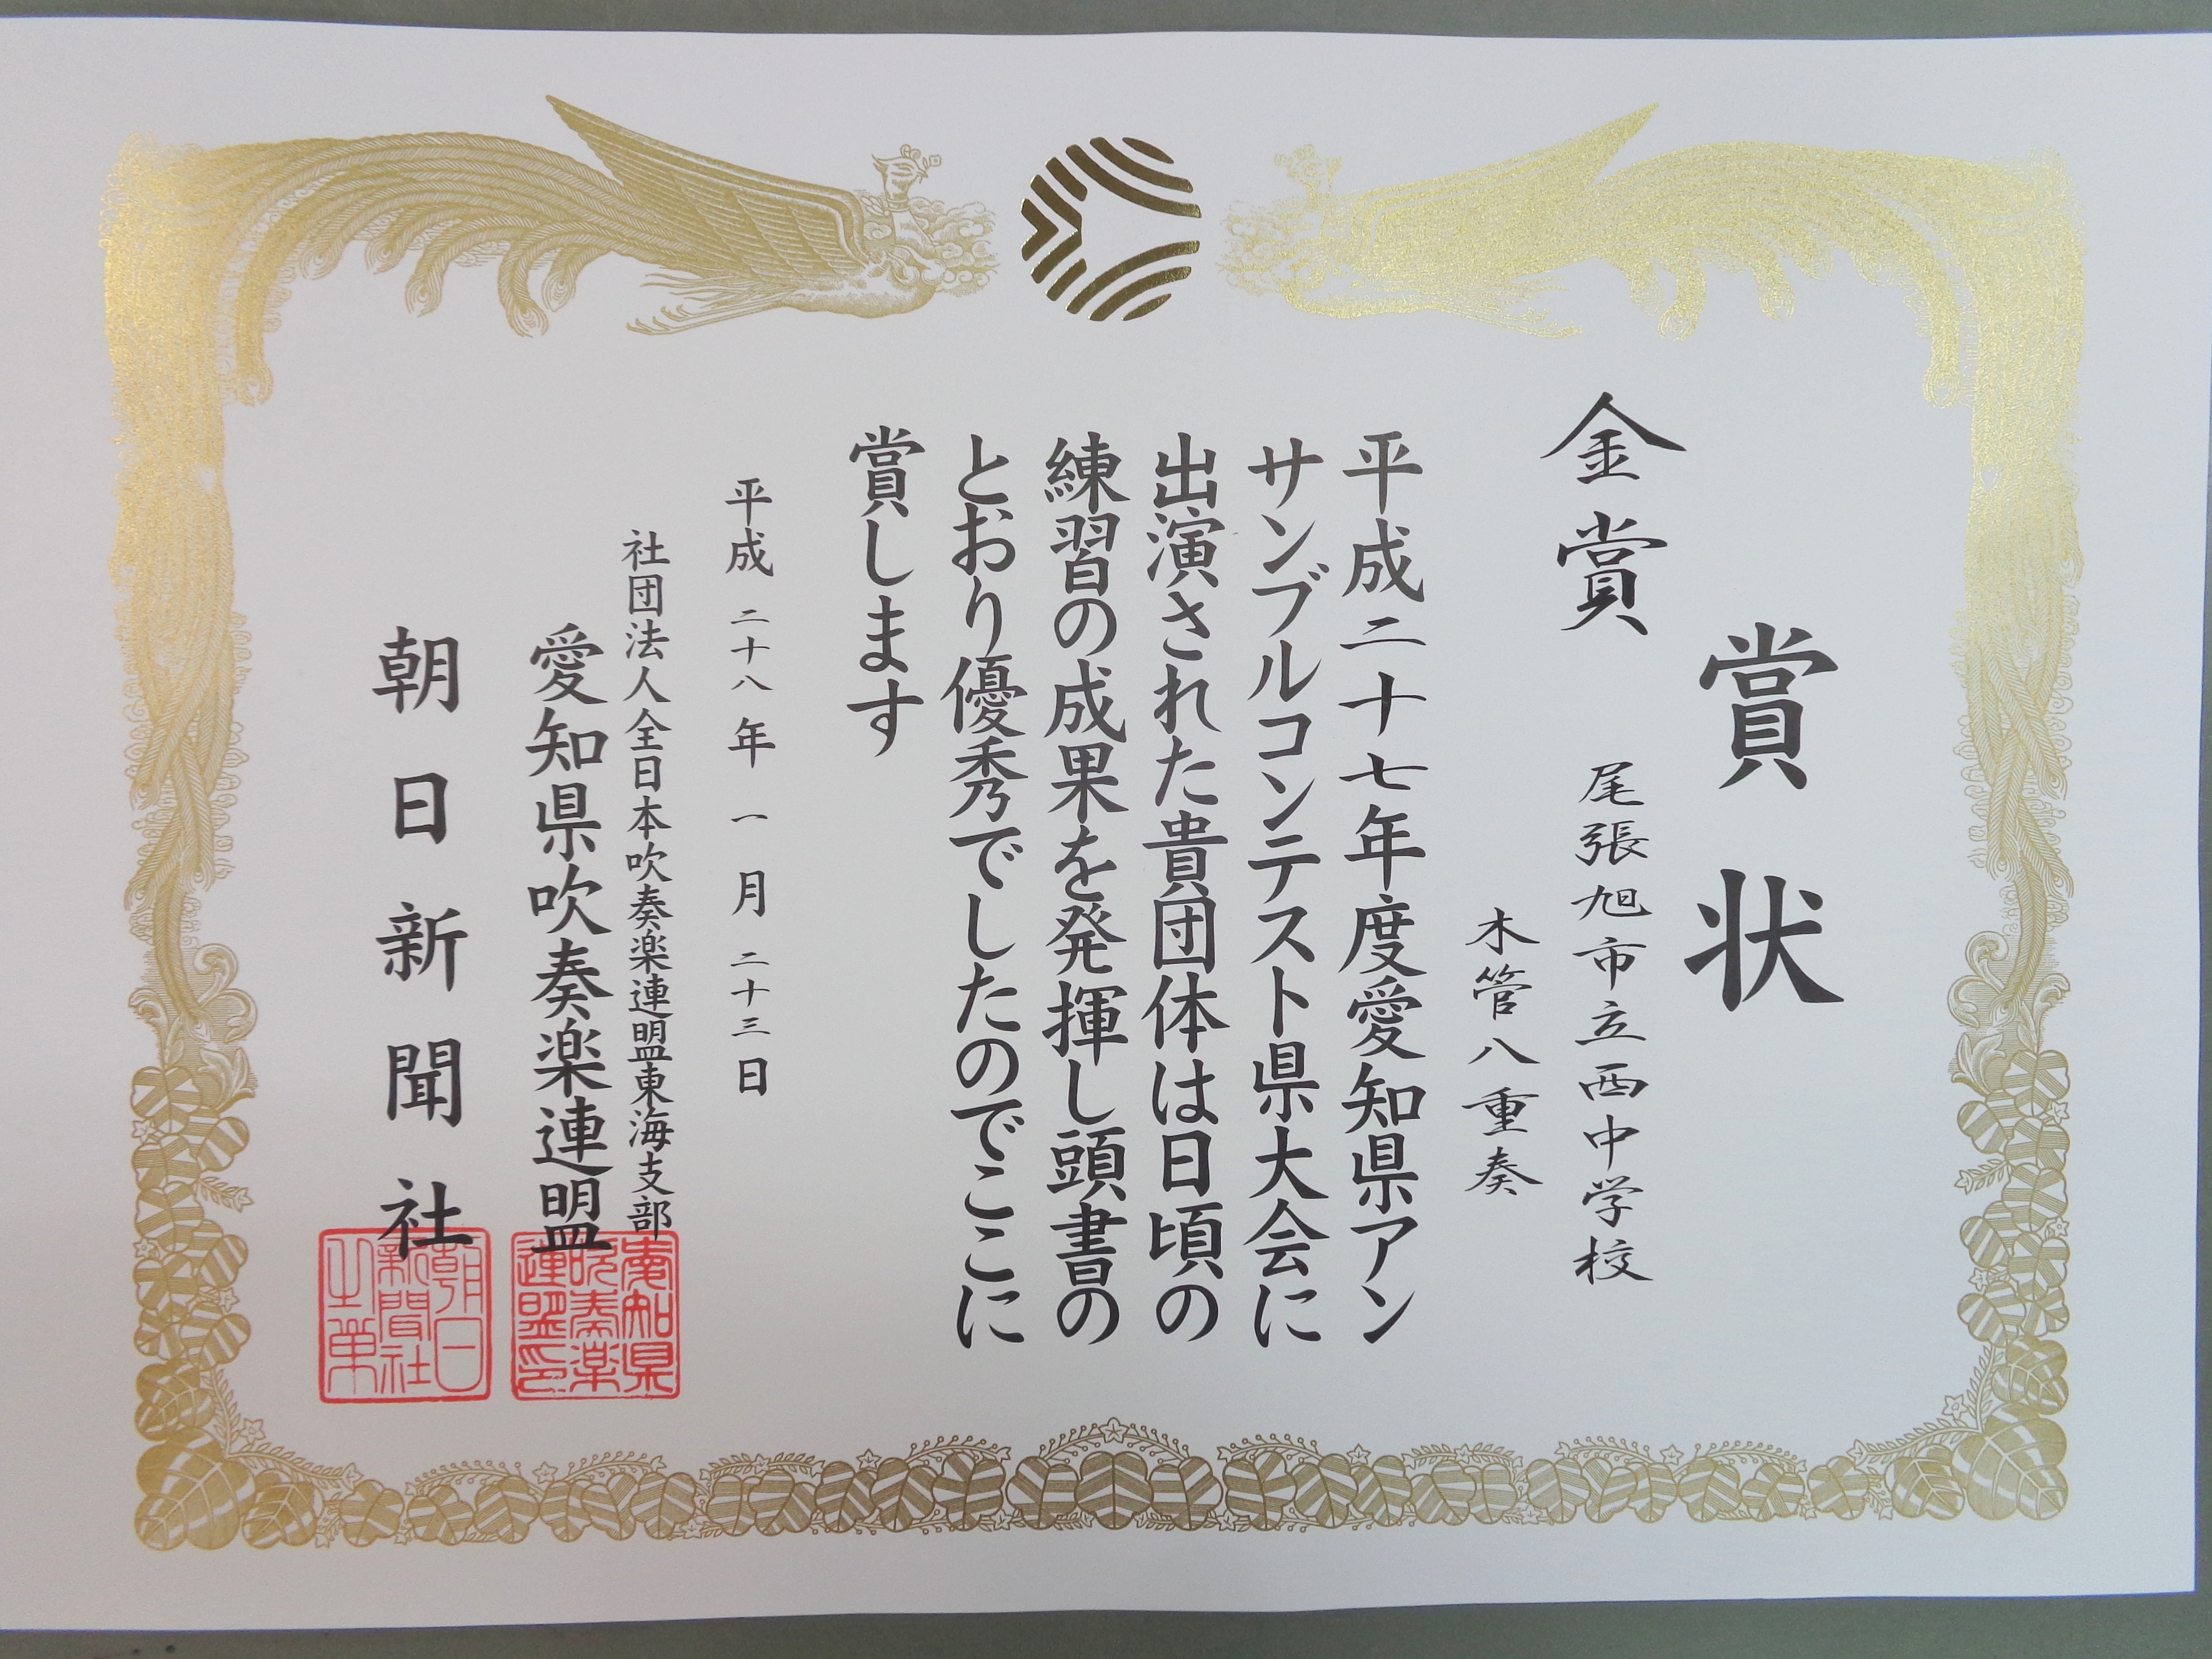 賞状
金賞
尾張旭市立西中学校
木管八重奏
平成二十七年度愛知県アン
サンブルコンテスト県大会に
出演された貴団体は日頃の
練習の成果を発揮し頭書の
とおり優秀でしたのでここに
賞します
平成二十八年一月二十三日
社団法人全日本吹奏楽連盟東海支部
愛知県吹奏楽連盟
愛知県
吹奏楽
連盟印
朝日新聞社
朝日
新聞社